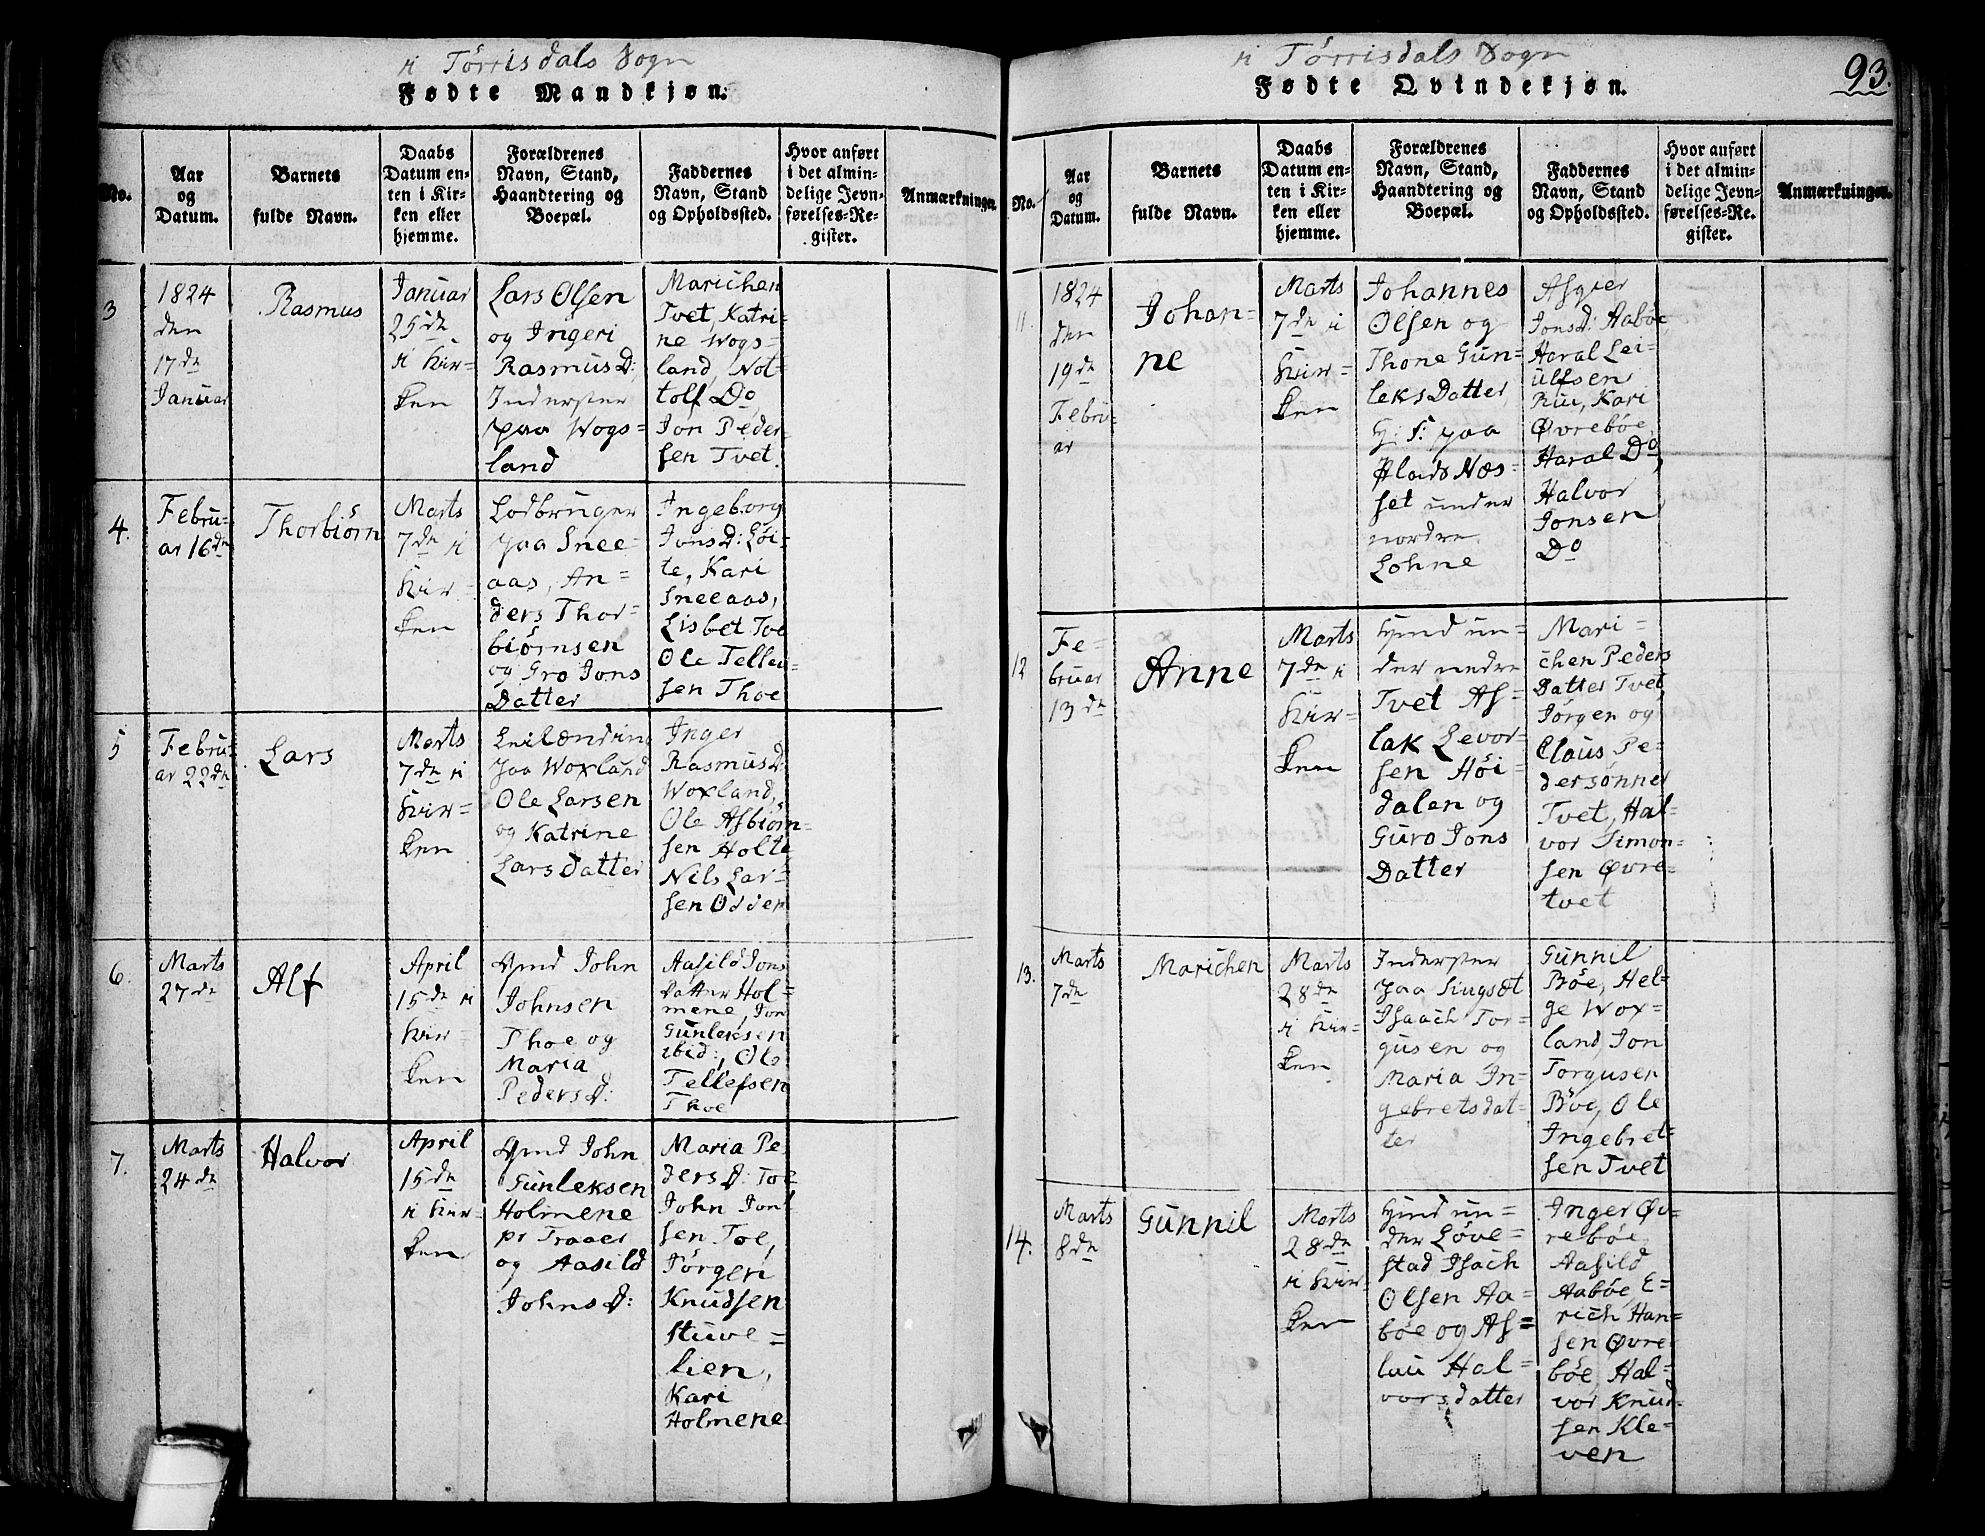 i Törrisdals Sogn
Fødte Mandkjøn.
No.
Aar
og
Datum.
Barnets
fulde Navn.
Daabs
Datum en-
ten i Kir-
ken eller
hjemme.
Forældrenes
Navn, Stand,
Haandtering og
Boepæl.
Faddernes
Navn, Stand
og Opholdssted.
Hvor anført
i det almin-
delige Jevn-
førelses-Re-
gister.
Anmærkninger.
3
1824
den
17de
Januar
Rasmus
Januar
25de
i Kir-
ken
Lars Olsen
og Ingeri
Rasmus D:
Inderster
paa Wogs=
land
Marichen
Tvet, Katri-
ne Wogs=
land, Not-
tolf Do
Jon Peder-
sen Tvet.
4.
Febru-
ar 16de
Thorbiörn
Marts
7de i
Kir-
ken
Lodbruger
paa Snee=
aas, An=
ders Thor=
biörnsen
og Gro Jons
Datter
Ingeborg
Jons D: Löi-
te, Kari
Sneeaas,
Lisbet Toe
Ole Tellev-
sen Thoe
5
Febru-
ar 22de
Lars
Marts
7de i
Kir=
ken
Leilænding
paa Woxland
Ole Larsen
og Katrine
Lars Datter
Inger
Rasmus D:
Woxland,
Ole Asbiörn-
sen Holte,
Nils Lar-
sen Odden
6.
Marts
27de
Alf
April
15de i
Kir-
ken
Hmd John
Johnsen
Thoe og
Maria
Peders D:
Aasild Jons
Datter Hol=
mene, Jon
Gunleksen
ibid:, Ole
Tellefsen
Thoe
7.
Marts
24de
Halvor
April
15de
i Kir-
ken
Hmd John
Gunleksen
Holmene
pr Traaer
og Aasild
Johns D:
Maria Pe-
ders D: Toe
John Jon-
sen Toe,
Jörgen
Knudsen
Stuve=
lien,
Kari
Holmene
i Törrisdals Sogn
Fødte Qvindekjøn.
93.
No.
Aar
og
Datum.
Barnets
fulde Navn.
Daabs
Datum en-
ten i Kir-
ken eller
hjemme.
Forældrenes
Navn, Stand,
Haandtering og
Boepæl.
Faddernes
Navn, Stand
og Opholdssted.
Hvor anført
i det almin-
delige Jevn-
førelses-Re-
gister.
Anmærkninger.
11.
1824
den
19de
Febru-
ar
Johan-
ne
Marts
7de i
Kir-
ken
Johannes
Olsen og
Thone Gun=
leks Datter
paa
Plads Næs-
set under
nordre
Lohne
Asgier
Jons D: Aaböe,
Haral Lei-
ulfsen
Riu, Kari
Øvreböe,
Haral Do,
Halvor
Jonsen
Do
12
Fe-
bruar
13de
Anne
Marts
7de i
Kir-
ken
Hmd un=
der nedre
Tvet As=
lak Levor-
sen Höi-
dalen og
Guro Jons
Datter
Mari=
chen Peders
Datter Tvet,
Jörgen og
Claus Pe-
dersönner
Tvet, Hal-
vor Simon-
sen Øvre-
tvet
13.
Marts
7de
Marichen
Marts
28de
i Kir-
ken
Inderster
paa Singsæt
Isaach Tor-
gusen og
Maria In-
gebretsdat-
ter
Gunnil
Böe, Hel-
ge Wox-
land, Jon
Torgusen
Böe, Ole
Ingebret-
sen Tvet
14.
Marts
8de
Gunnil
Marts
28de
i Kir-
ken
Hmd un=
der Löve=
stad Isach
Olsen Aa-
böe og As=
lau Hal=
vorsdatter
Inger Øv-
reböe,
Aasild
Aaböe, E-
rich Han-
sen Øvre-
böe, Hal-
vor Knud-
sen Kle-
ven